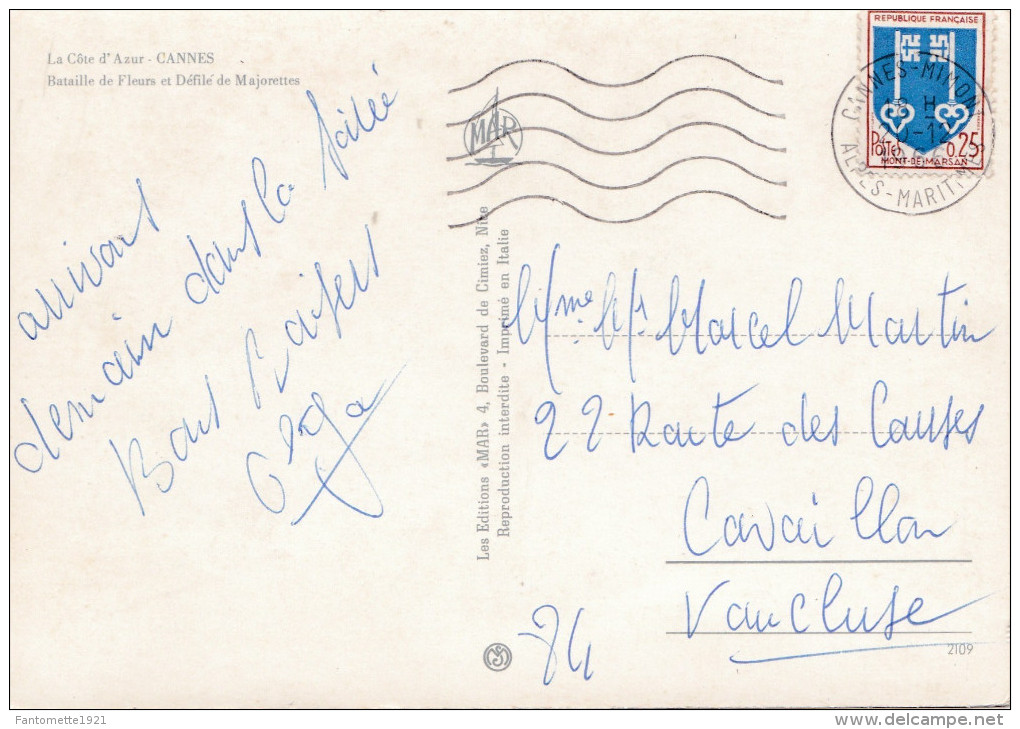 La Côte d'Azur - CANNES
Bataille de Fleurs et Défilé de Majorettes
arrivons
demain dans la soirée
Bons Baisers
Olga
MAR
Les Editions «MAR» 4, Boulevard de Cimiez, Nice
Reproduction interdite - Imprimé en Italie
REPUBLIQUE FRANÇAISE
POSTES
0.25
MONT-DE-MARSAN
CANNES-MIMONT
18 H
ALPES-MARITIMES
Mme Mr Marcel Martin
22 Route des Causses
Cavaillon
Vaucluse
84
2109
Fantomette1921
www.delcampe.net